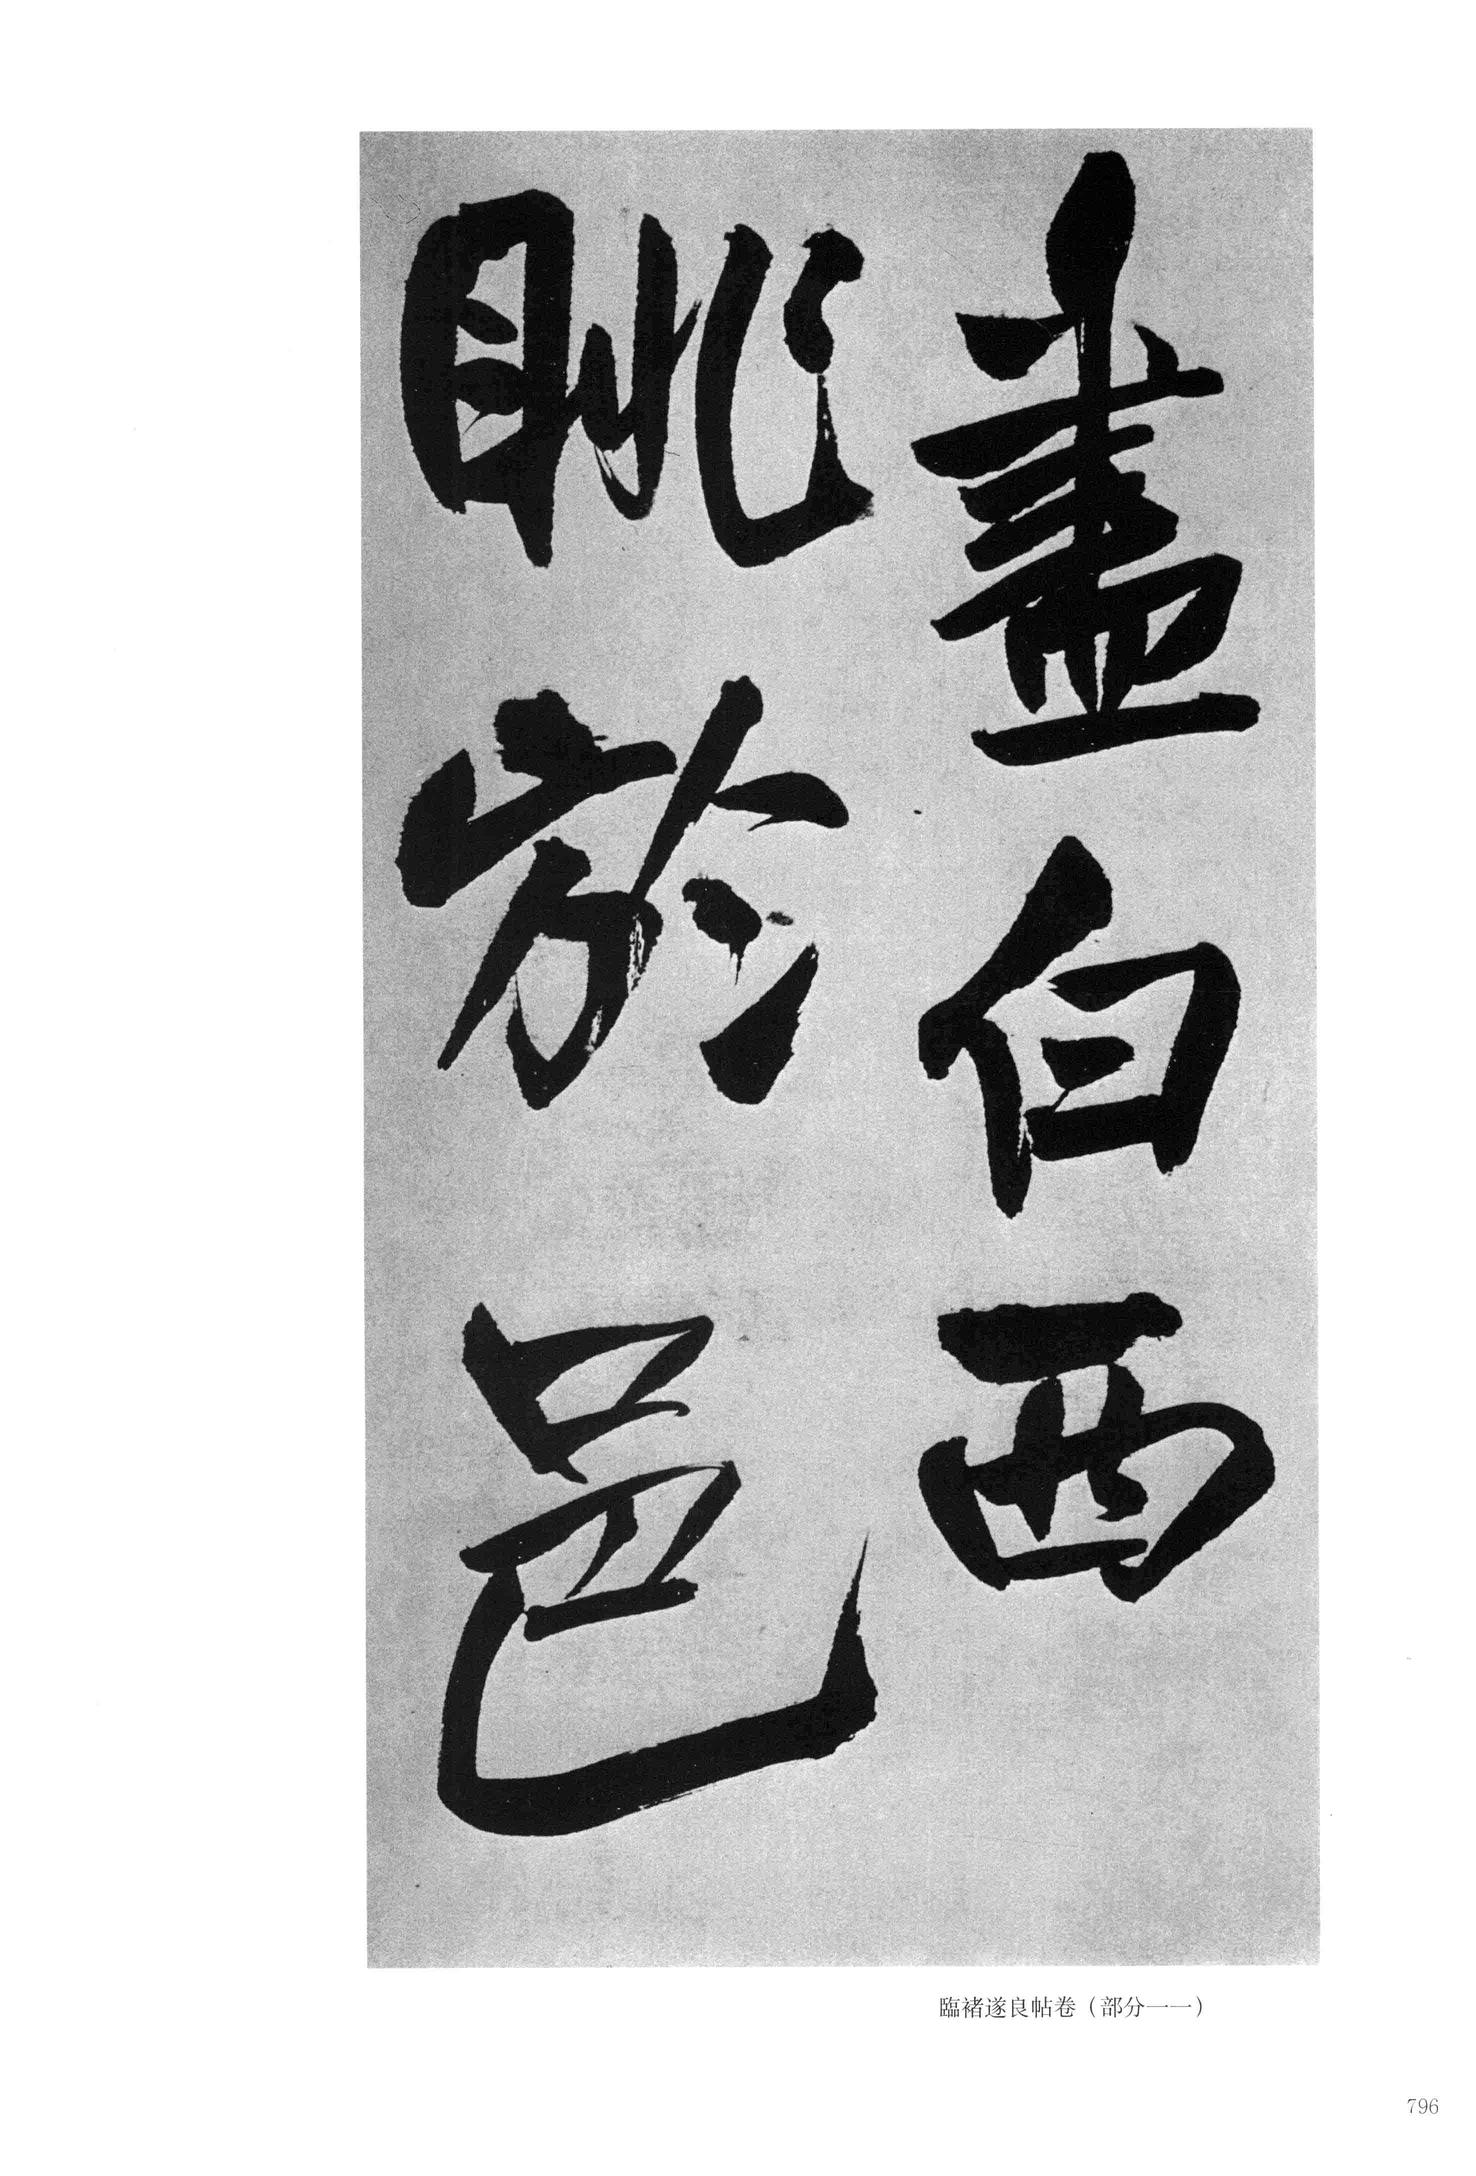 盡白西
眺於邑
臨褚遂良帖卷（部分一一）
796